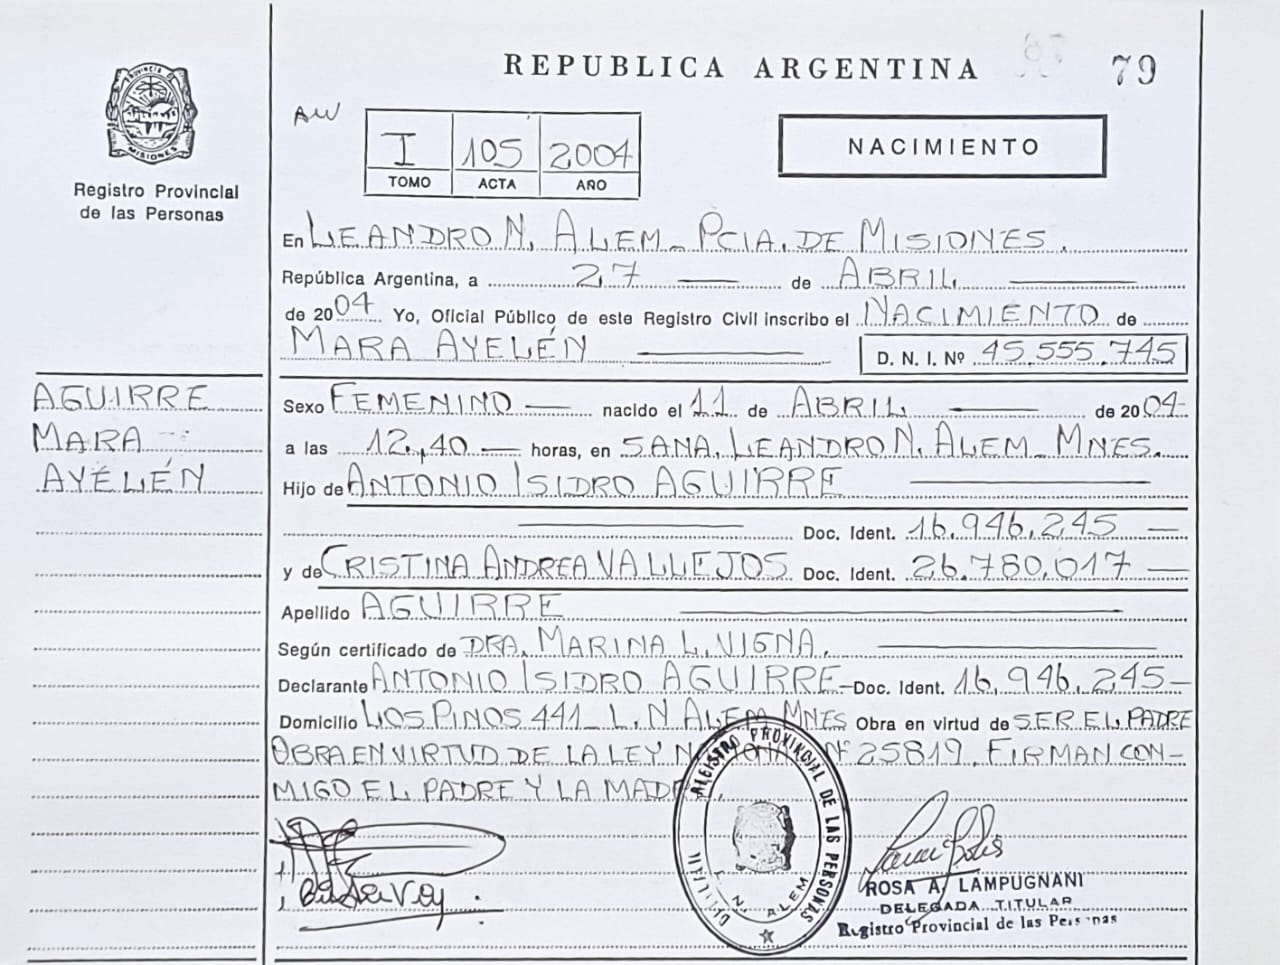 REPUBLICA ARGENTINA
79
PROVINCIA D
MISIONES
Registro Provincial
de las Personas
AW
I 105 2004
TOMO ACTA AÑO
NACIMIENTO
En LEANDRO N. ALEM - PCIA. DE MISIONES.
República Argentina, a 27 de ABRIL
de 2004 Yo, Oficial Público de este Registro Civil inscribo el NACIMIENTO de
MARA AYELÉN
D. N. I. Nº 45.555.745
AGUIRRE
MARA
AYELÉN
Sexo FEMENINO nacido el 11 de ABRIL de 2004
a las 12,40 horas, en SANA. LEANDRO N. ALEM - MNES.
Hijo de ANTONIO ISIDRO AGUIRRE
Doc. Ident. 16.946.245
y de CRISTINA ANDREA VALLEJOS Doc. Ident. 26.780.017
Apellido AGUIRRE
Según certificado de DRA. MARINA L. VIGNA.
Declarante ANTONIO ISIDRO AGUIRRE - Doc. Ident. 16.946.245 -
Domicilio LOS PINOS 441 - L. N ALEM MNES Obra en virtud de SER EL PADRE
OBRA EN VIRTUD DE LA LEY Nº 25819. FIRMAN CON-
MIGO EL PADRE Y LA
REGISTRO PROVINCIAL DE LAS PERSONAS
L. N. ALEM
ROSA A. LAMPUGNANI
DELEGADA TITULAR
Registro Provincial de las Personas